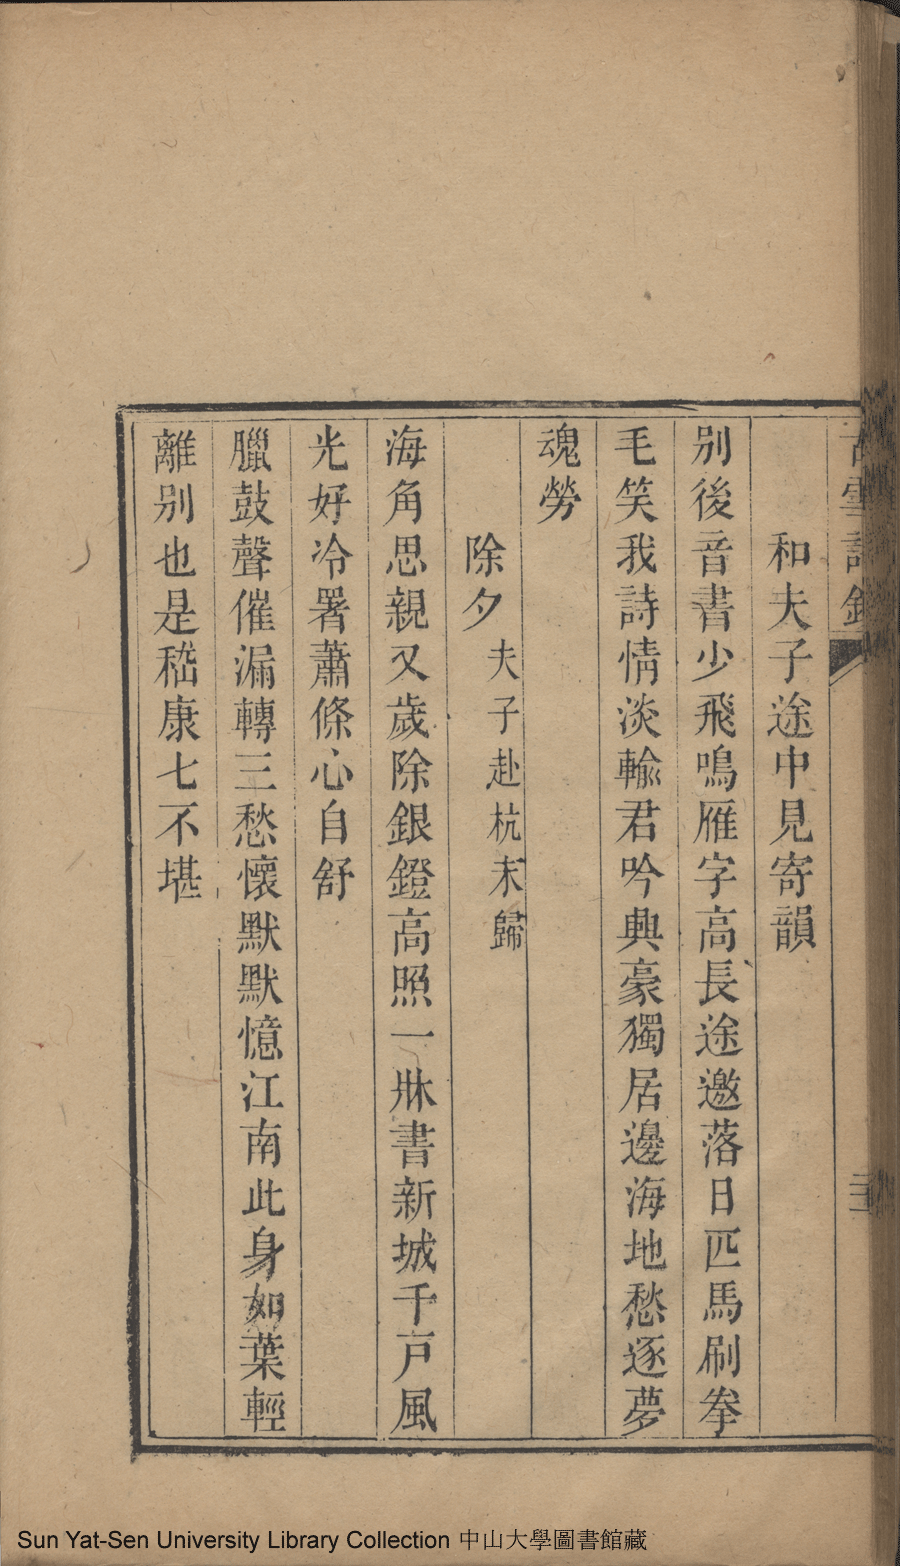 古雪詩鈔
和夫子途中見寄韻
别後音書少飛鳴雁字高長途邀落日匹馬刷拳
毛笑我詩情淡輸君吟興豪獨居邊海地愁逐夢
魂勞
除夕夫子赴杭未歸
海角思親又歲除銀鐙高照一牀書新城千戸風
光好冷署蕭條心自舒
臘鼓聲催漏轉三愁懷默默憶江南此身如葉輕
離别也是嵇康七不堪
Sun Yat-Sen University Library Collection 中山大學圖書館藏